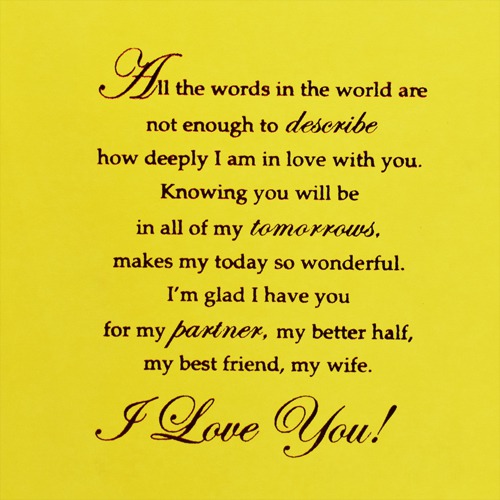 All the words in the world are
not enough to describe
how deeply I am in love with you.
Knowing you will be
in all of my tomorrows,
makes my today so wonderful.
I'm glad I have you
for my partner, my better half,
my best friend, my wife.
I Love You!